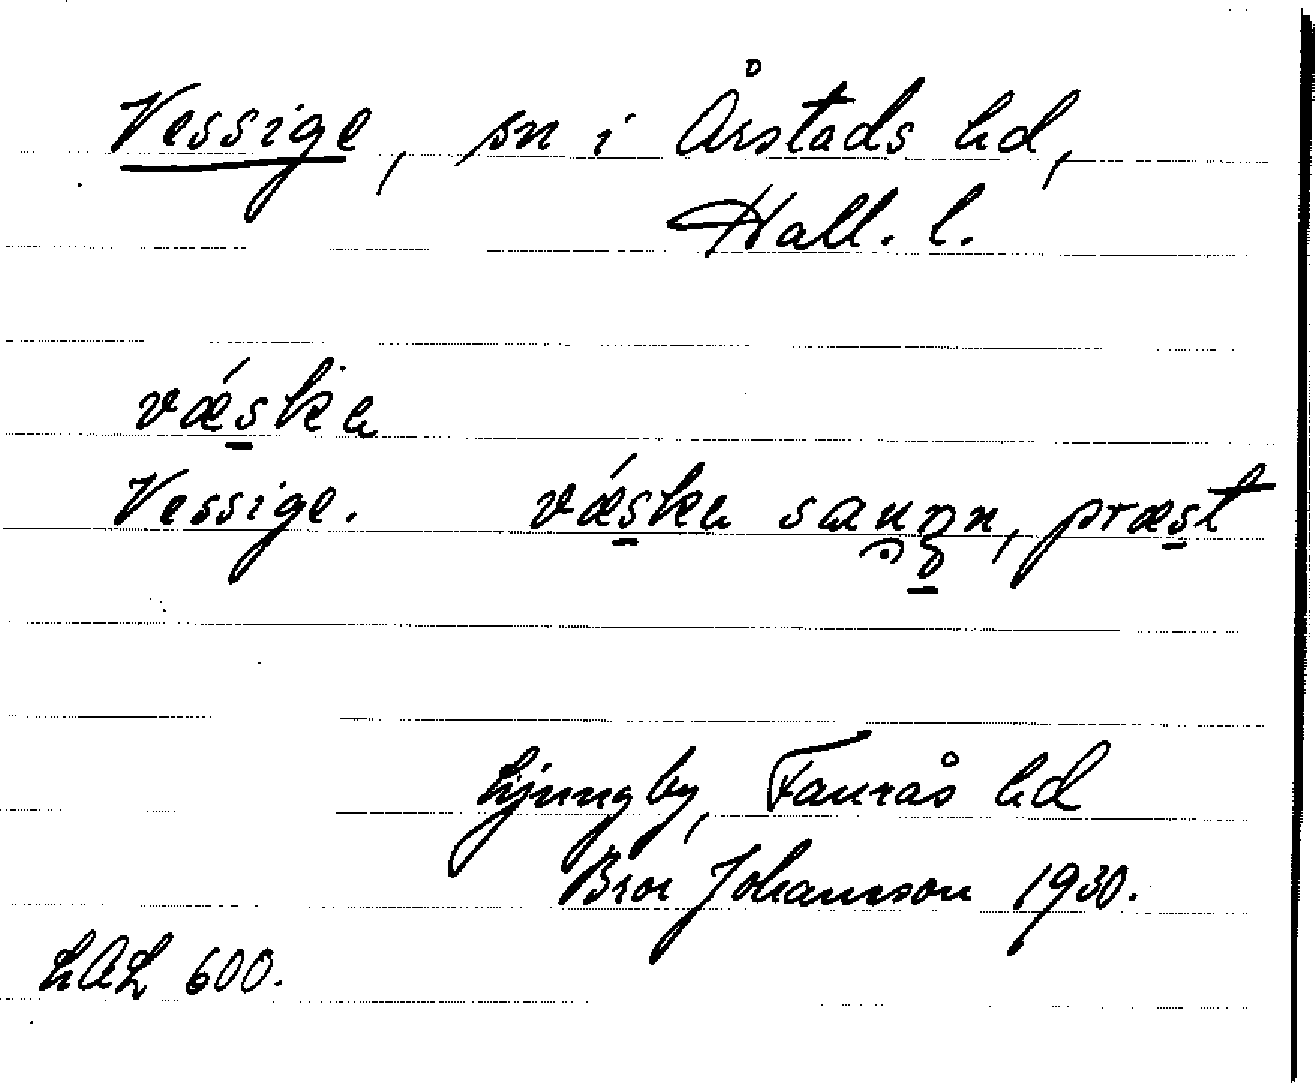 Vessige, sn i Årstads hd,
Hall. l.
vǽska
Vessige. vǽska saugn, præst
Ljungby, Faurås hd
Bror Johansson 1930.
LAL 600.